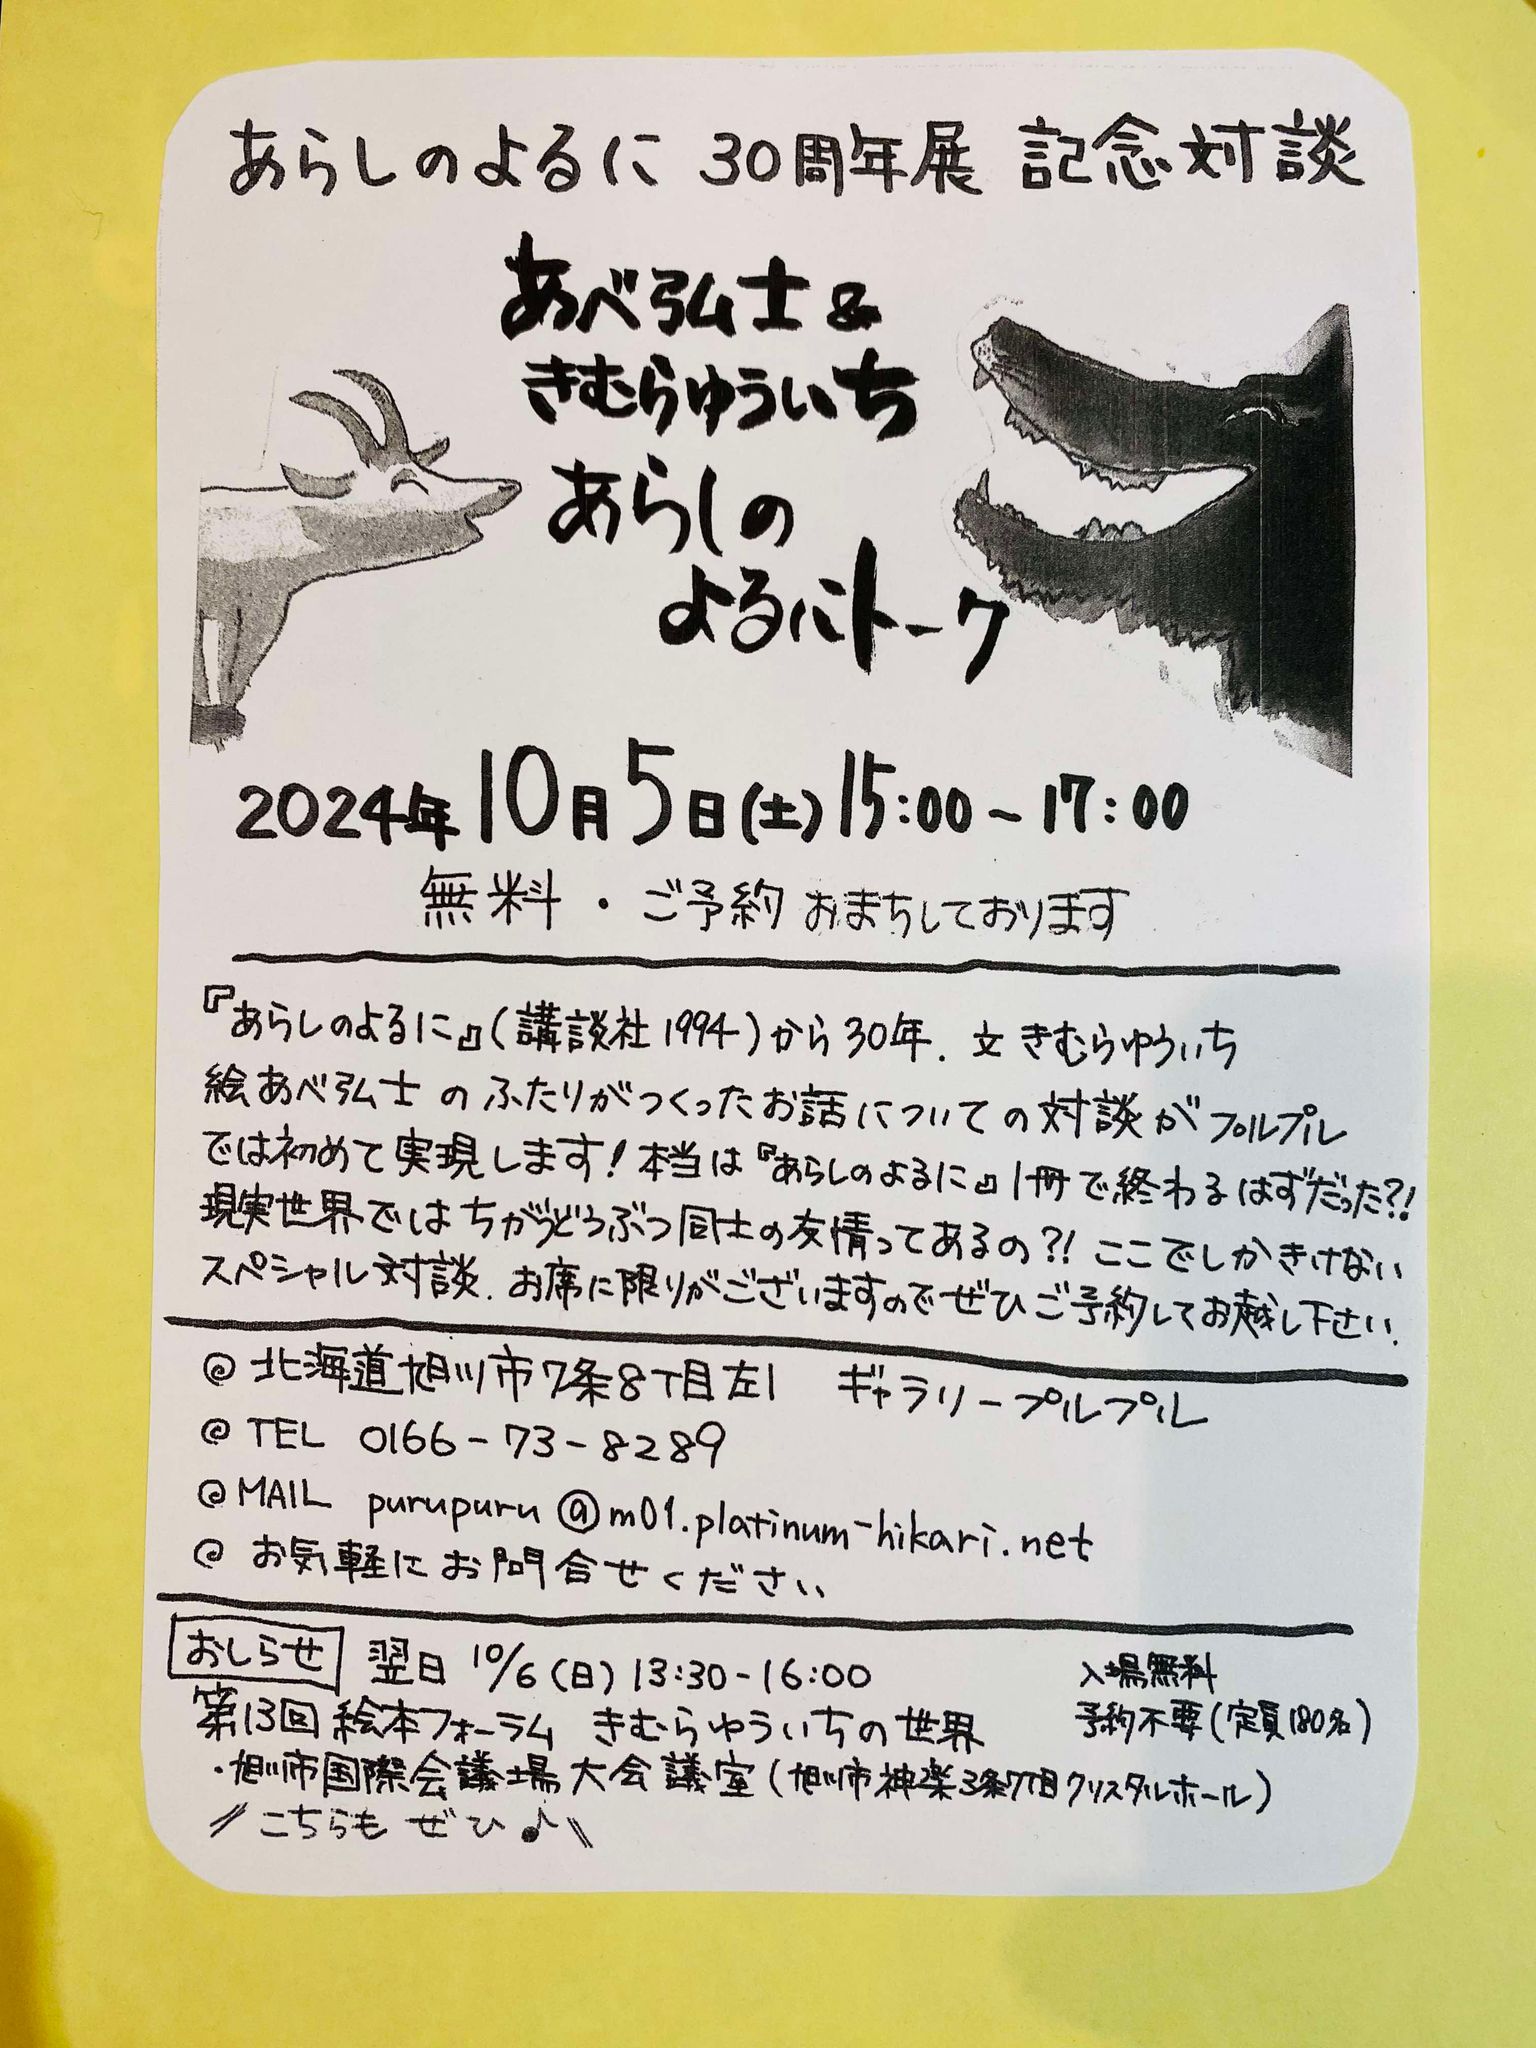 あらしのよるに 30周年展 記念対談
あべ弘士&
きむらゆういち
あらしの
よるにトーク
2024年10月5日(土)15:00~17:00
無料・ご予約おまちしております
『あらしのよるに』(講談社1994)から30年. 文 きむらゆういち
絵あべ弘士のふたりがつくったお話についての対談がプルプル
では初めて実現します!本当は『あらしのよるに』1冊で終わるはずだった?!
現実世界ではちがうどうぶつ同士の友情ってあるの?! ここでしかきけない
スペシャル対談. お席に限りがございますのでぜひご予約してお越し下さい.
@ 北海道旭川市7条8丁目左1 ギャラリープルプル
@ TEL 0166-73-8289
@ MAIL purupuru@m01.platinum-hikari.net
@ お気軽にお問合せください
おしらせ 翌日 10/6(日)13:30-16:00 入場無料
第13回絵本フォーラム きむらゆういちの世界 予約不要(定員180名)
・旭川市国際会議場大会議室(旭川市神楽3条7丁目クリスタルホール)
〃こちらも ぜひ♪〃